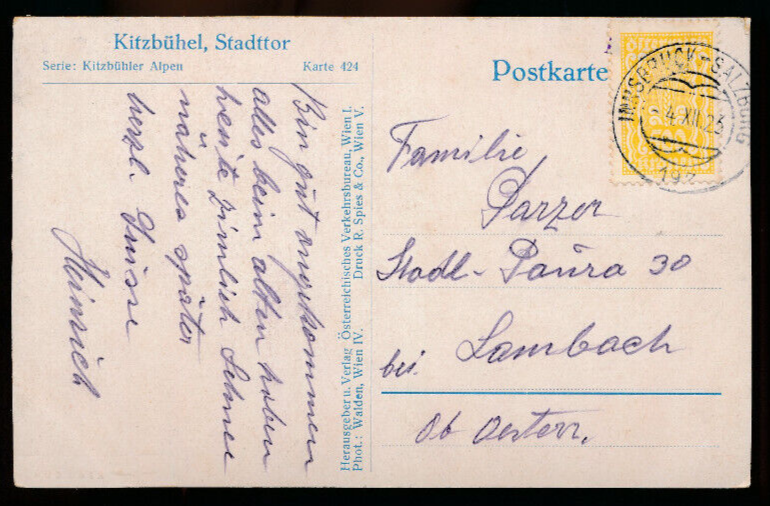 Kitzbühel, Stadttor
Serie: Kitzbühler Alpen Karte 424
Bin gut angekommen
alles beim alten haben
heute zimlich Schnee
näheres später
herzl. Grüsse
Heinrich
Herausgeber u. Verlag Österreichisches Verkehrsbureau, Wien I.
Phot.: Walden, Wien IV. Druck R. Spies & Co., Wien V.
Postkarte
INNSBRUCK-SALZBURG
4.XII.23
Familie
Parzer
Stadl-Paura 30
bei Lambach
Ob Oesterr.